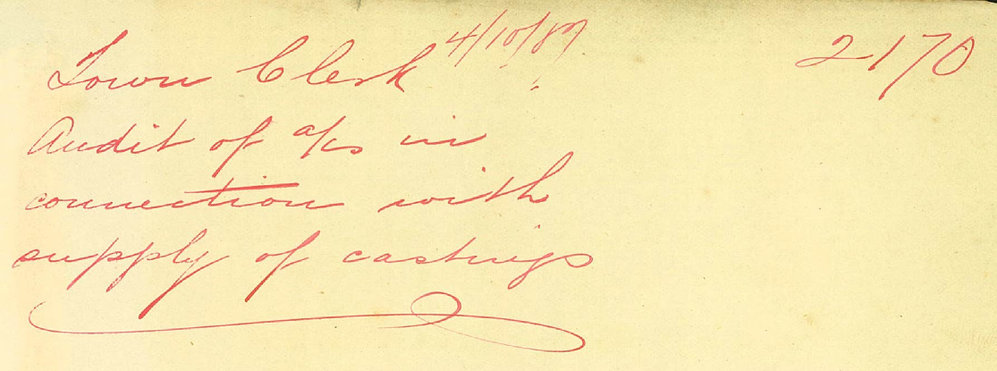 Town Clerk 4/10/87. 2170
Audit of a/cs in
connection with
supply of castings